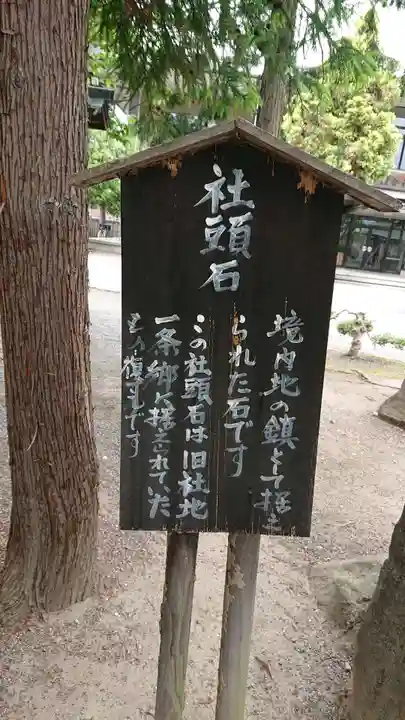 社頭石
境内地の鎮として据え
られた石です
この社頭石は旧社地
一条郷に据えられていた
もの復元です